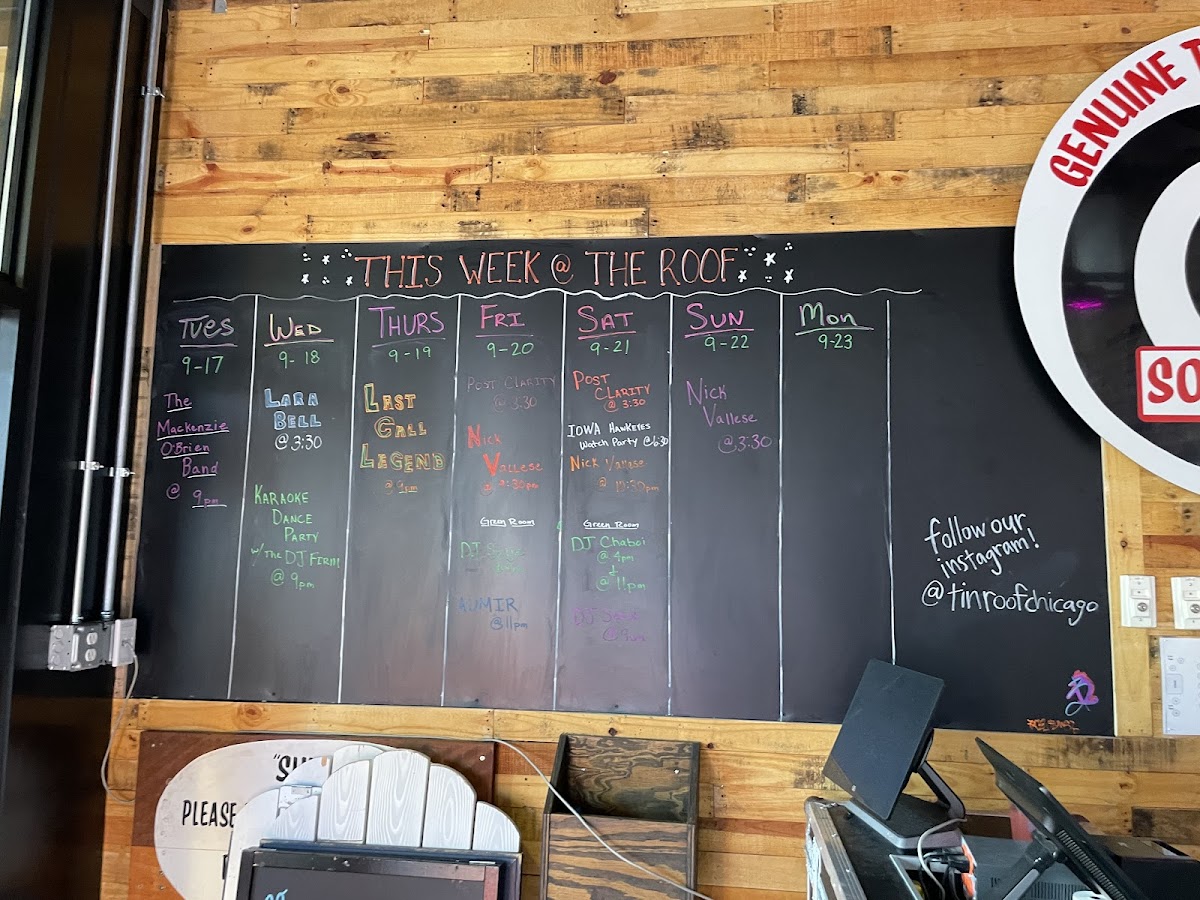 THIS WEEK @ THE ROOF
TUES
9-17
The
Mackenzie
O'Brien
Band
@ 9pm
WED
9-18
LARA
BELL
@ 3:30
KARAOKE
DANCE
PARTY
w/ THE DJ FIRM
@ 9pm
THURS
9-19
LAST
CALL
LEGEND
@ 9pm
FRI
9-20
POST CLARITY
@ 3:30
NICK
VALLESE
Green Room
DJ
AUMIR
@ 11pm
SAT
9-21
POST
CLARITY
@ 3:30
IOWA HAWKEYES
Watch Party @ 6:30
NICK Vallese
@ 10:30pm
Green Room
DJ Chaboi
@ 4pm
@ 11pm
DJ
@ 9pm
SUN
9-22
Nick
Vallese
@ 3:30
Mon
9-23
follow our
instagram!
@tinroofchicago
GENUINE
SO
PLEASE